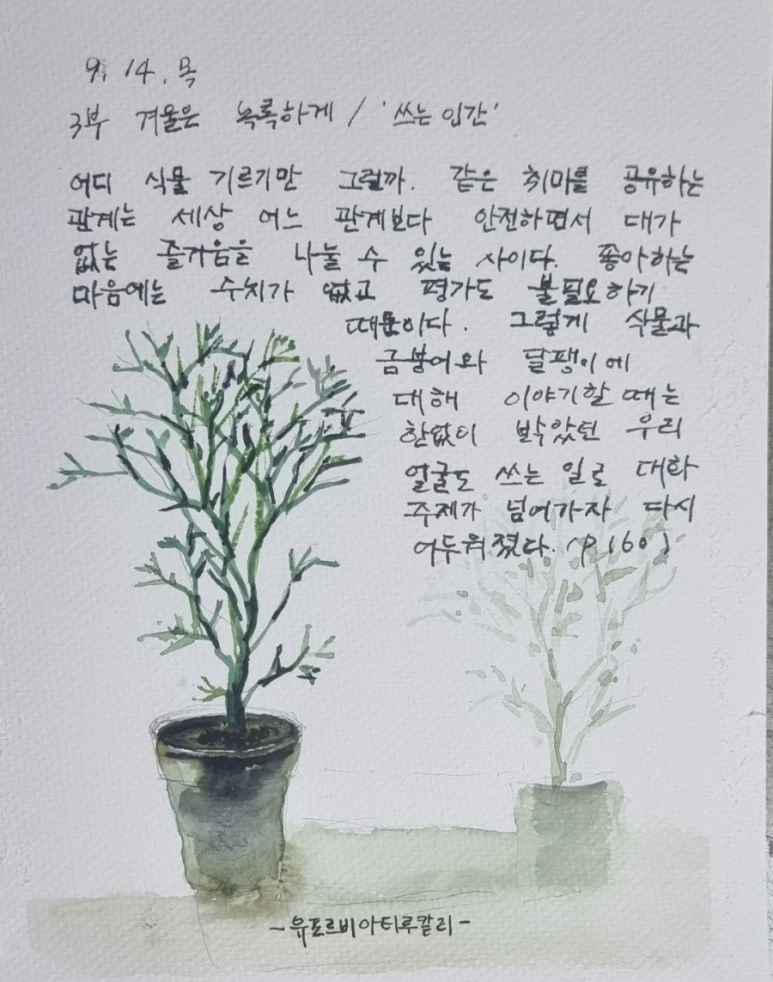 9. 14. 목
3부 겨울은 녹록하게 / '쓰는 인간'
어디 식물 기르기만 그럴까. 같은 취미를 공유하는
관계는 세상 어느 관계보다 안전하면서 대가
없는 즐거움을 나눌 수 있는 사이다. 좋아하는
마음에는 수치가 없고 평가도 불필요하기
때문이다. 그렇게 식물과
금붕어와 달팽이에
대해 이야기할 때는
한없이 밝았던 우리
얼굴도 쓰는 일로 대화
주제가 넘어가자 다시
어두워졌다. (p160)
-유포르비아티루칼리-